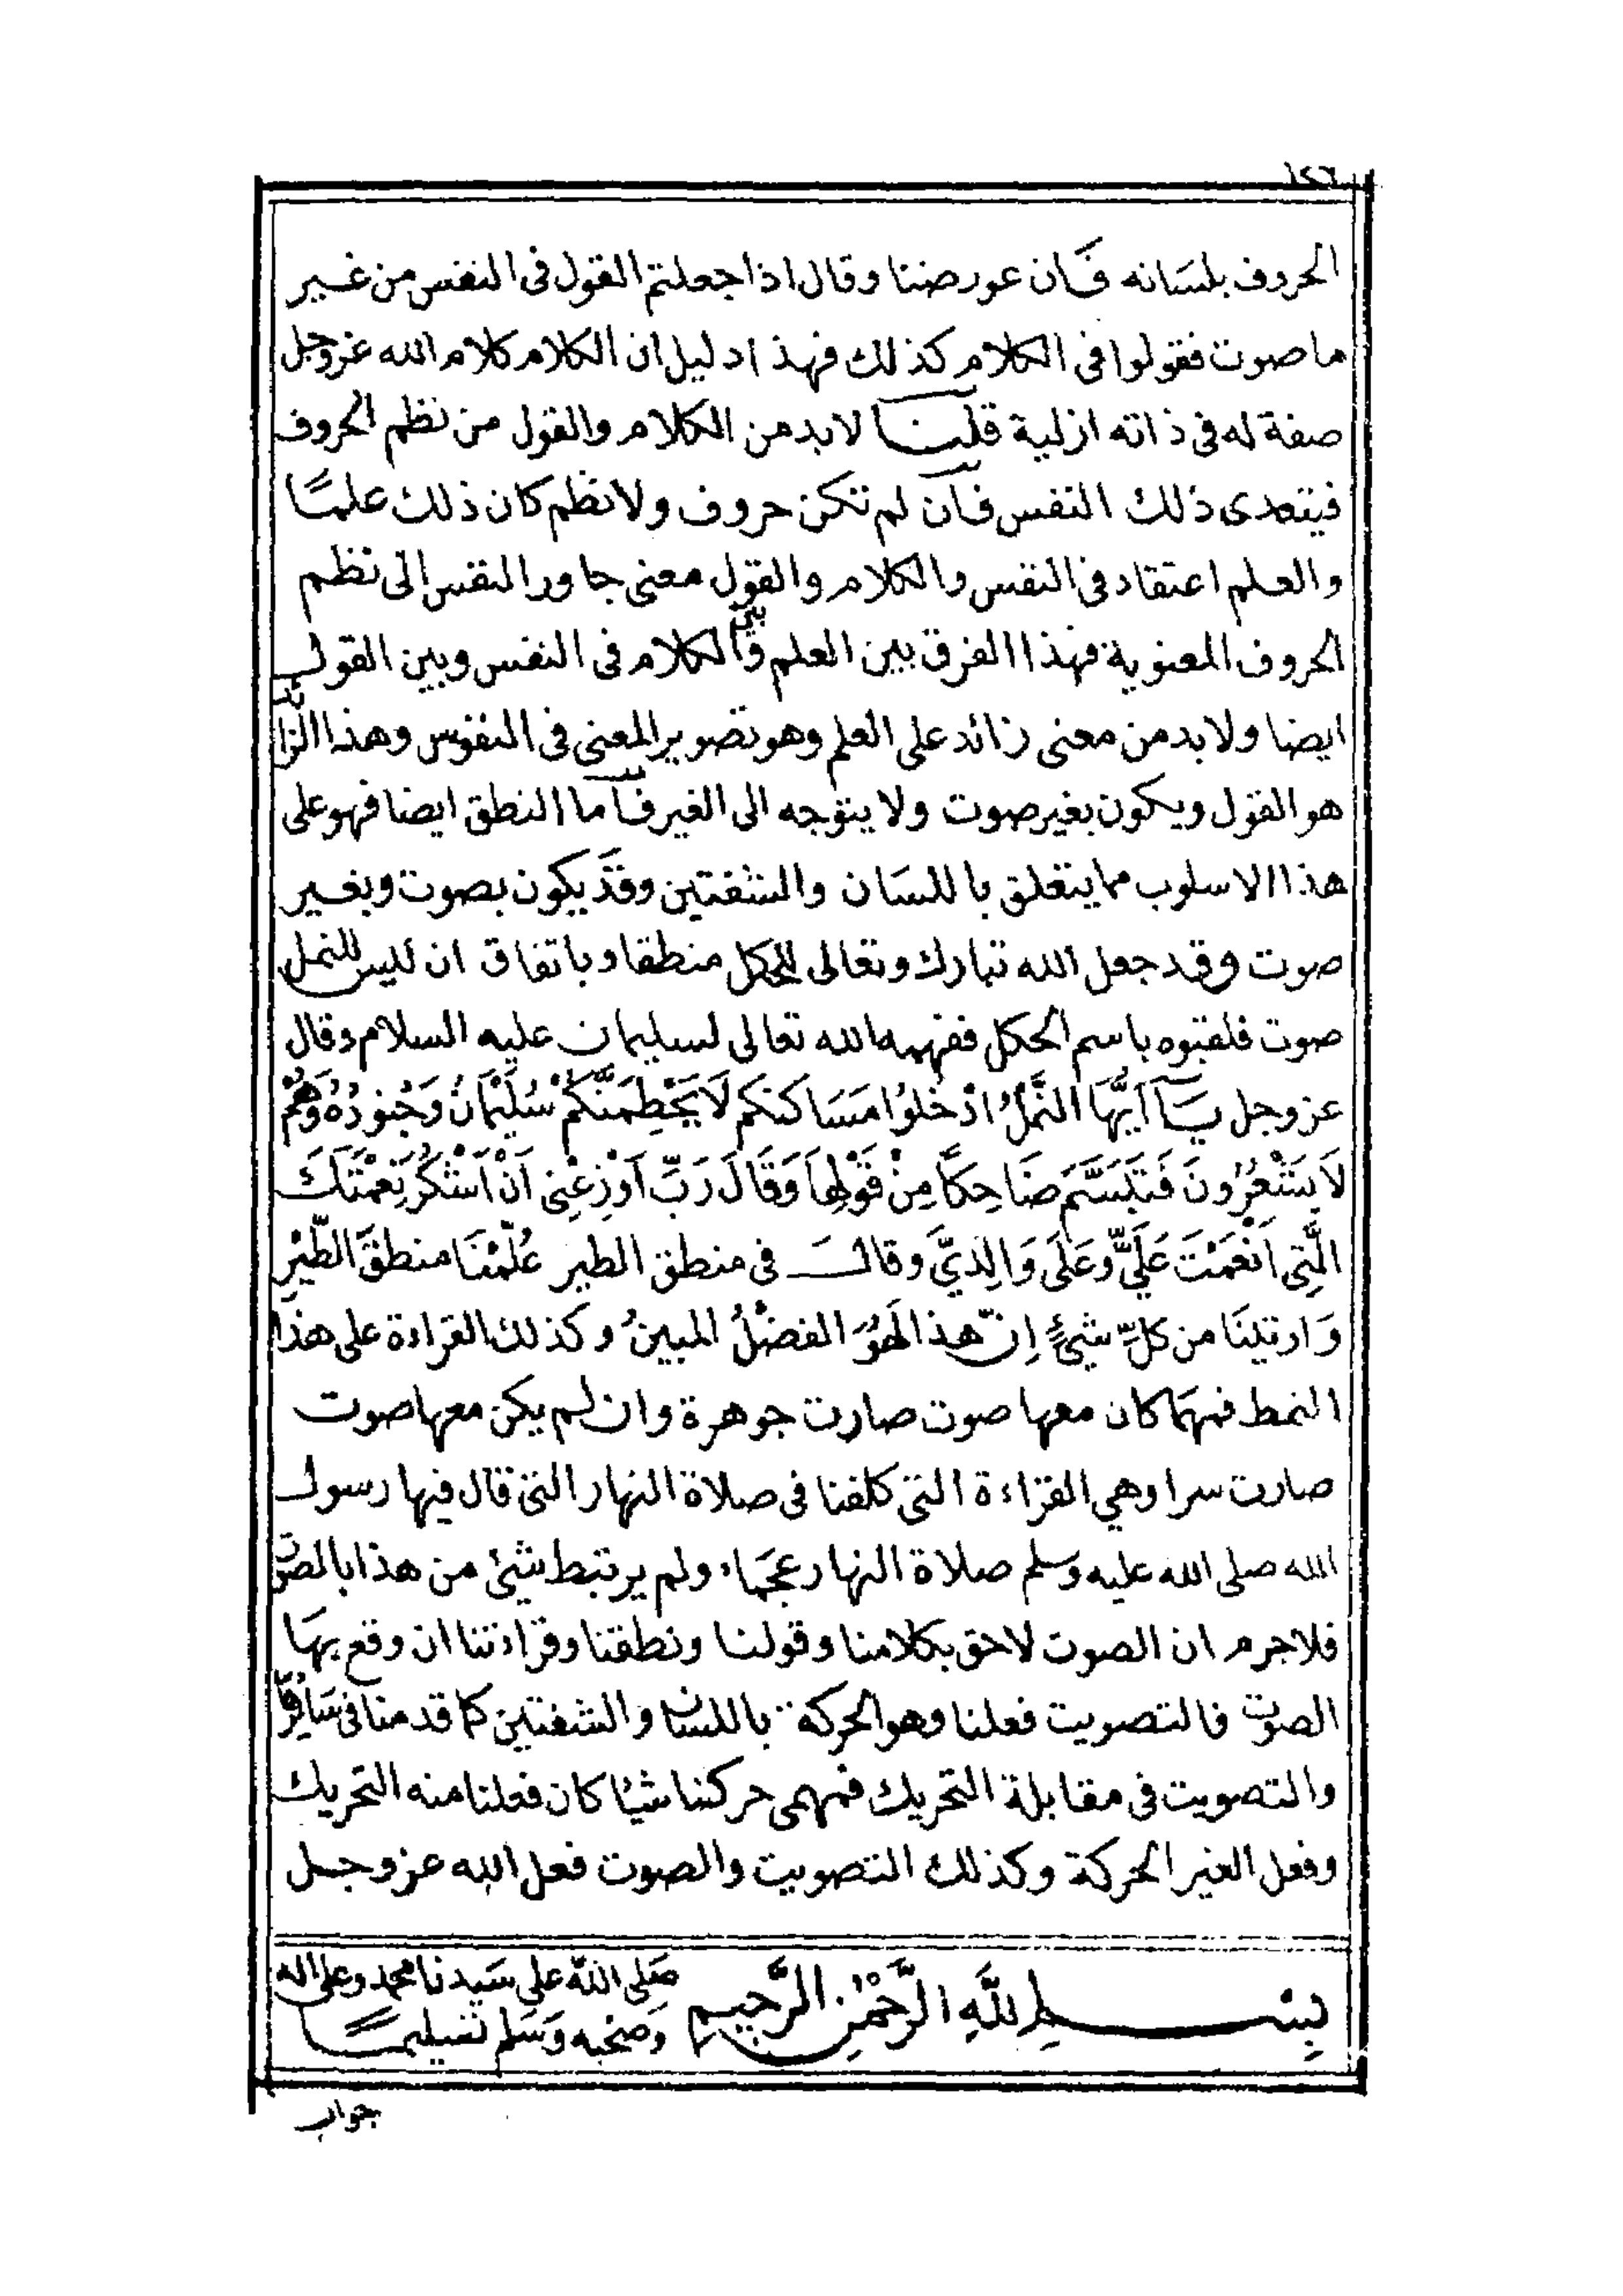 ١٢٦
الحروف بلسَانه فَان عورضنا وقال اذا جعلتم القول فى النفس من غير
ما صوت فقولوا فى الكلام كذلك فهذا دليل ان الكلام كلام الله عزوجل
صفة له فى ذاته ازلية قلنا لا بد من الكلام والقول من نظم الحروف
فيتعدى ذلك النفس فان لم تكن حروف ولا نظم كان ذلك علمًا
والعلم اعتقاد فى النفس والكلام والقول معنى جاور النفس الى نظم
الحروف المعنوية فهذا الفرق بين العلم وبين الكلام فى النفس وبين القول
ايضا ولا بد من معنى زائد على العلم وهو تصوير المعنى فى النفوس وهذا الزائد
هو القول ويكون بغير صوت ولا يتوجه الى الغير فأما النطق ايضا فهو على
هذا الاسلوب مما يتعلق باللسَان والشفتين وقد يكون بصوت وبغير
صوت وقد جعل الله تبارك وتعالى للحكل منطقا وباتفاق ان ليس للنمل
صوت فلقبوه باسم الحكل ففهمه الله تعالى لسليمان عليه السلام وقال
عزوجل يَآ اَيُّهَا النَّمْلُ ادْخُلُوا مَسَاكنَكم لَا يَحْطِمَنَّكُمْ سُلَيْمَانُ وَجُنودُهُ وَهُمْ
لَا يَشْعُرُونَ فَتَبَسَّمَ ضَاحِكًا مِنْ قَوْلِهَا وَقَالَ رَبِّ اَوْزِعْنِى اَنْ اَشْكُرَ نِعْمَتَكَ
الَّتِى اَنْعَمْتَ عَلَيَّ وَعَلَى وَالِدَيَّ وقال فى منطق الطير عُلِّمْنَا منطقَ الطَّيْرِ
وَاوتينَا من كلِّ شيْئٍ اِنّ هذا لَهُوَ الفضْلُ المبينُ وكذلك القراءة على هذا
النمط فمهمَا كان معها صوت صارت جوهرة وان لم يكن معها صوت
صارت سرا وهي القراءة التى كلفنا فى صلاة النهار التى قال فيها رسول
الله صلى الله عليه وسلم صلاة النهار عجمَاء ولم يرتبط شيئ من هذا بالصوت
فلا جرم ان الصوت لاحق بكلامنا وقولنا ونطقنا وقراءتنا ان وقع بهَا
الصوت فالتصويت فعلنا وهو الحركة باللسان والشفتين كما قدمنا فى
والتصويت فى مقابلة التحريك فمهمى حركنا شيئا كان فعلنا منه التحريك
وفعل الغير الحركة وكذلك التصويت والصوت فعل الله عزوجل
بِسْمِ اللَّهِ الرَّحْمٰنِ الرَّحِيمِ صَلى اللهُ على سَيدنا محمد وعلى اله
وَصَحبه وَسَلم تسليمًا
جواب